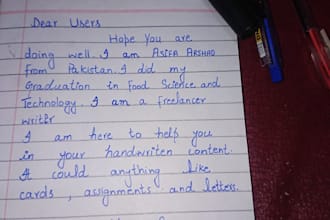 Dear Users
Hope you are
doing well. I am ASIFA ARSHAD
from Pakistan. I did my
Graduation in Food Science and
Technology. I am a freelancer
writer
I am here to help you
in your handwriten content.
It could anything like
cards, assignments and letters.